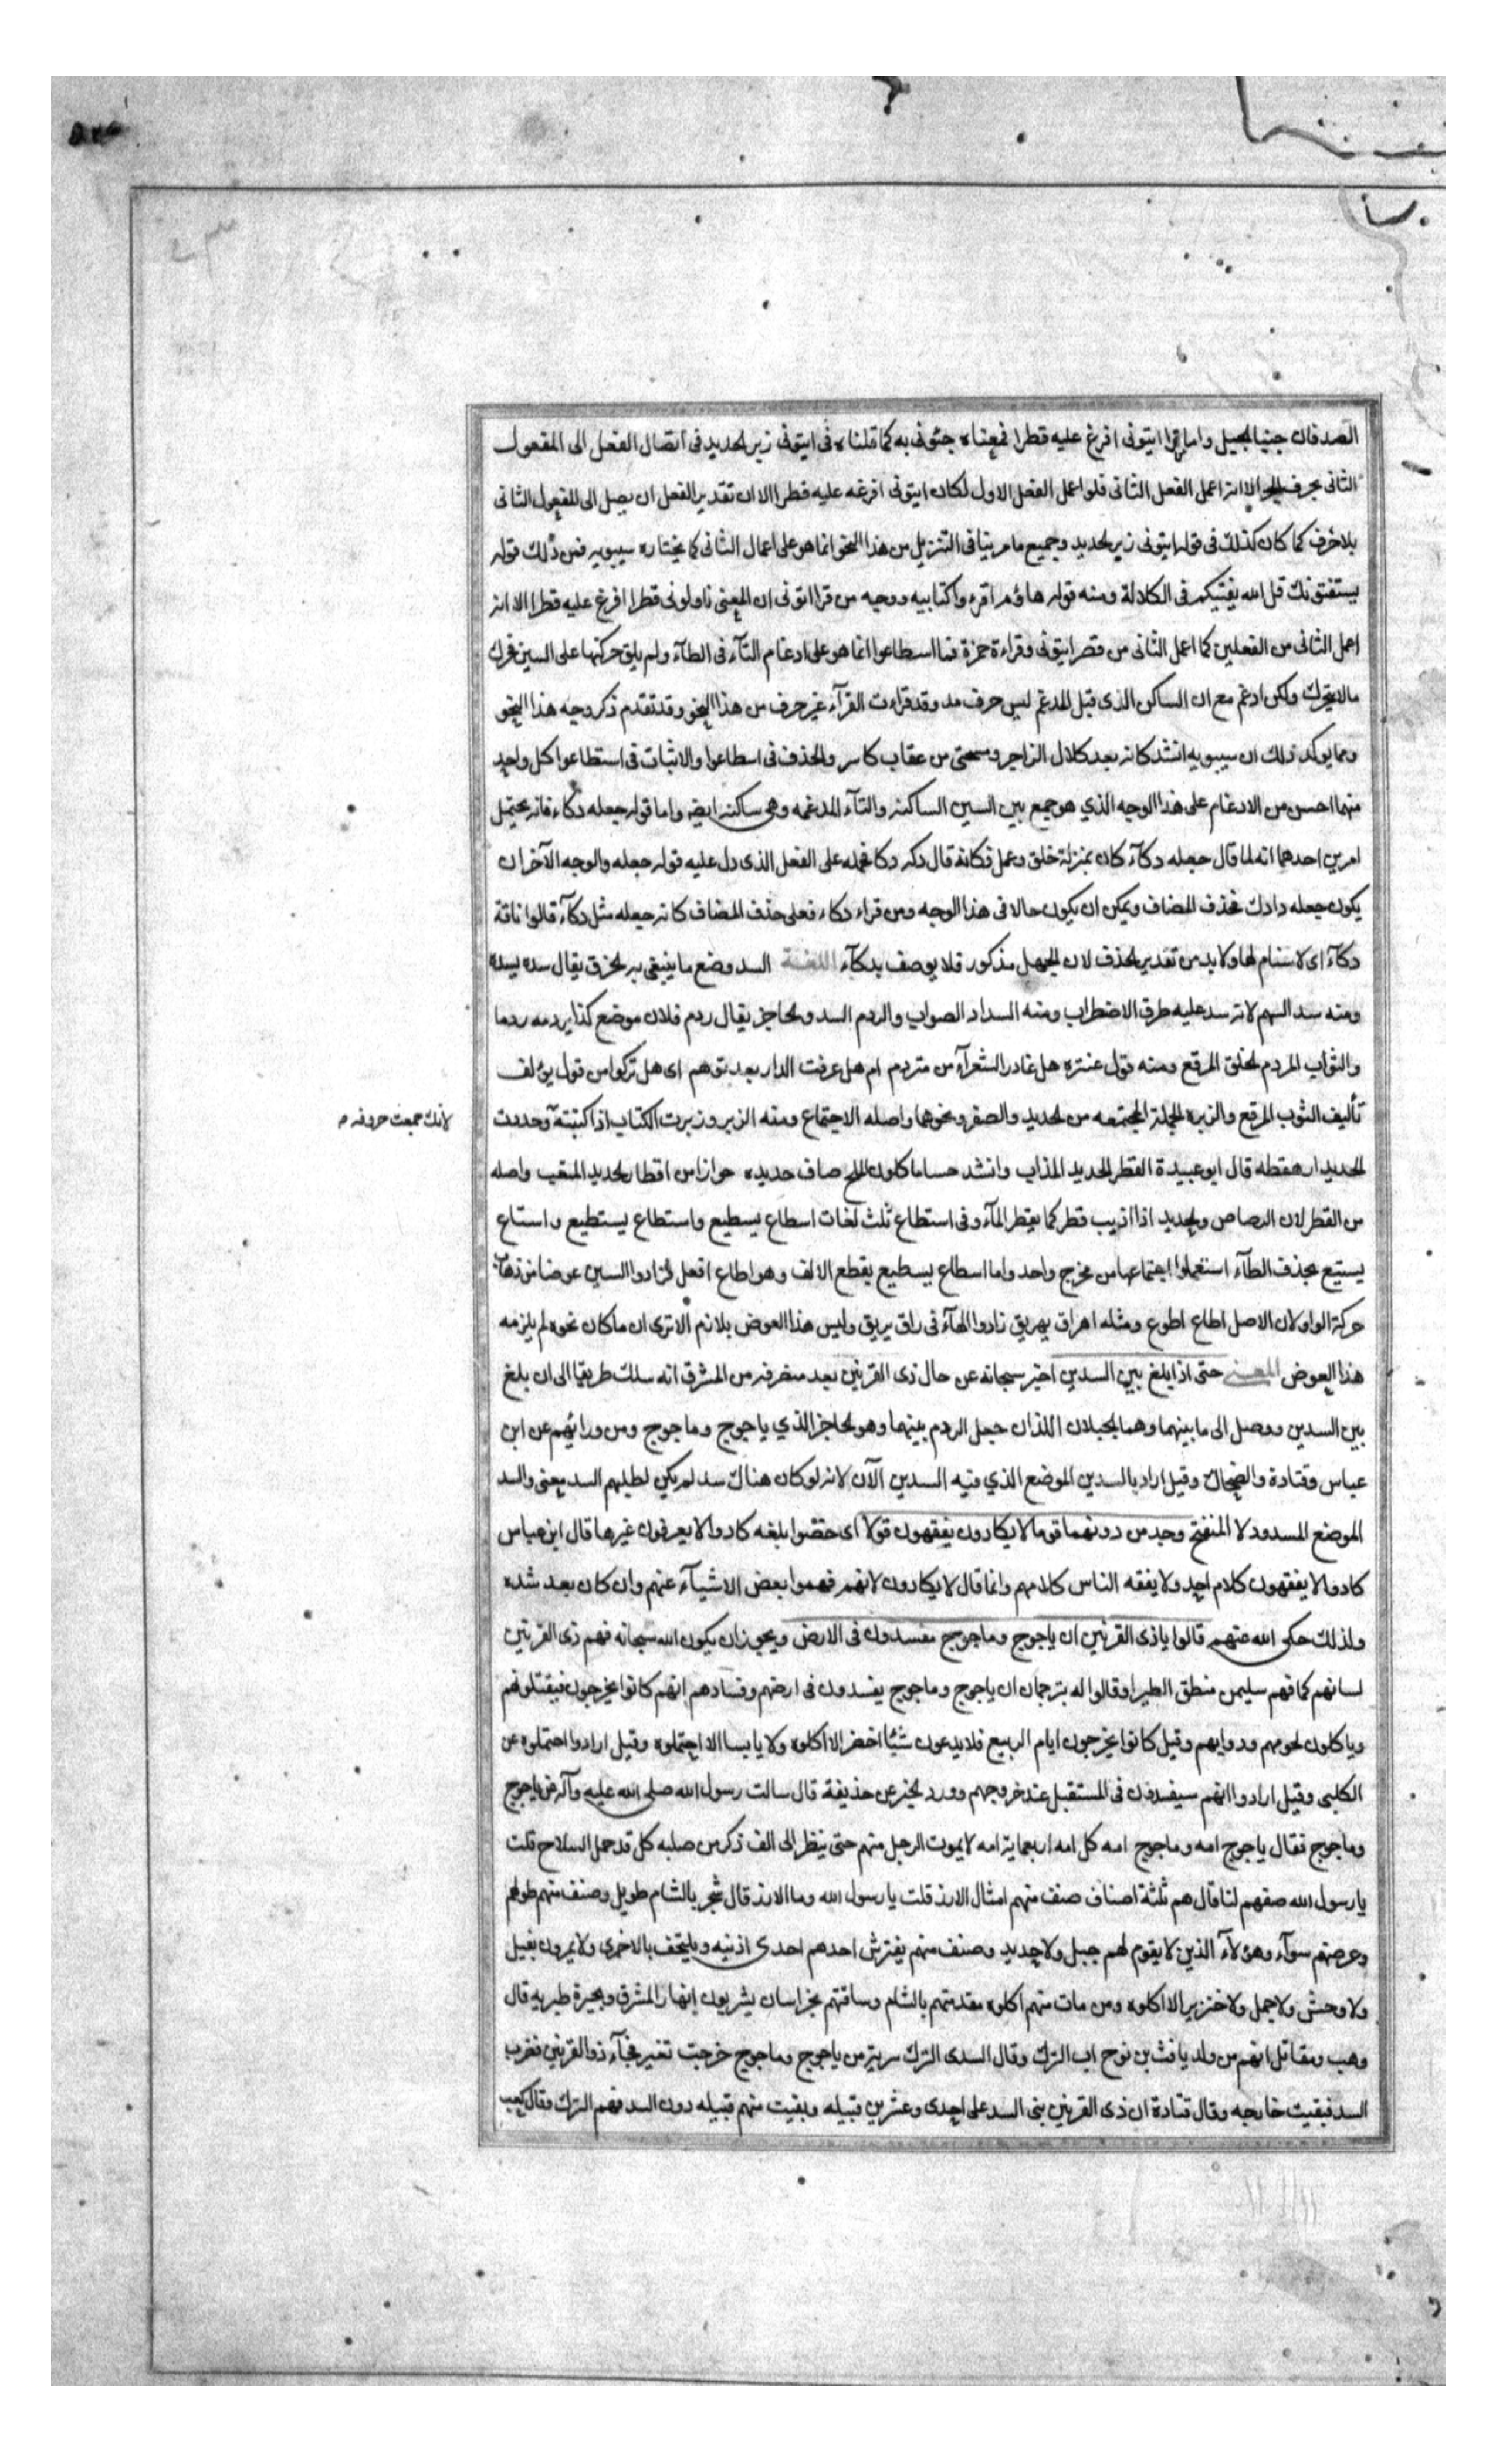 الصدفان جنبا الجبل واما من قرا ايتونى افرغ عليه قطرا فمعناه جئونى به كما قلناه فى ايتونى زبر الحديد فى اتصال الفعل الى المفعول
الثانى بحرف الجر الا انه اعمل الفعل الثانى فلو اعمل الفعل الاول لكان ايتونى افرغه عليه قطرا الا ان تقدير الفعل ان يصل الى المفعول الثانى
بلا حرف كما كان كذلك فى قوله ايتونى زبر الحديد وجميع ما مر بنا فى التنزيل من هذا النحو انما هو على اعمال الثانى كما يختاره سيبويه فمن ذلك قوله
يستفتونك قل الله يفتيكم فى الكلالة ومنه قوله هاؤم اقرءوا كتابيه ووجه من قرا اتونى ان المعنى ناولونى قطرا افرغ عليه قطرا الا انه
اعمل الثانى من الفعلين كما اعمل الثانى من قصر ايتونى وقراءة حمزة فما اسطاعوا انما هو على ادغام التآء فى الطآء ولم يلق حركتها على السين فيحرك
مالا يتحرك ولكن ادغم مع ان الساكن الذى قبل المدغم ليس حرف مد وقد قراءت القرآء غير حرف من هذا النحو وقد تقدم ذكر وجه هذا النحو
ومما يوكد ذلك ان سيبويه انشد كانه بعد كلال الزاجر ومسحى من عقاب كاسر والحذف فى اسطاعوا والاثبات فى استطاعوا كل واحد
منهما احسن من الادغام على هذا الوجه الذي هو جمع بين السين الساكنه والتآء المدغمه وهى ساكنه ايضا واما قوله جعله دكاء فانه يحتمل
امرين احدهما انه لما قال جعله دكآء كان بمنزلة خلق وعمل فكانه قال دكه دكا فحمله على الفعل الذى دل عليه قوله جعله والوجه الآخر ان
يكون جعله ذا دك فحذف المضاف ويمكن ان يكون حالا فى هذا الوجه ومن قراء دكاء فعلى حذف المضاف كانه جعله مثل دكآء قالوا ناقة
دكآء اى لا سنام لها ولا بد من تقدير الحذف لان الجبل مذكور فلا يوصف بدكآء اللغة السد وضع ما ينبغى به الخرق يقال سده يسده
ومنه سد السهم لانه سد عليه طرق الاضطراب ومنه السداد الصواب والردم السد والحاجز يقال ردم فلان موضع كذا يردمه ردما
والثواب المردم الخلق المرقع ومنه قول عنتره هل غادر الشعرآء من متردم ام هل عرفت الدار بعد توهم اى هل تركوا من قول يؤلف
تأليف الثوب المرقع والزبرة الجملة المجتمعه من الحديد والصفر ونحوهما واصله الاجتماع ومنه الزبر وزبرت الكتاب اذا كتبته وحددت
لانك جمعت حروفه م
الحديد قال ابو عبيدة القطر الحديد المذاب وانشد حساما كلون الملح صاف حديده جرازا من اقطار الحديد المنقب واصله
من القطر لان الرصاص والحديد اذا اذيب قطر كما يقطر المآء وفى استطاع ثلث لغات اسطاع يسطيع واستطاع يستطيع واستاع
يستيع بحذف الطآء استثقلوا اجتماعهما من مخرج واحد واما اسطاع يسطيع بقطع الالف وهو اطاع افعل فزادوا السين عوضا من ذهاب
حركة الواو لان الاصل اطاع اطوع ومثله اهراق يهريق زادوا الهآء فى راق يريق وليس هذا العوض بلازم الا ترى ان ما كان نحوه لم يلزمه
هذا العوض المعنى حتى اذا بلغ بين السدين اخبر سبحانه عن حال ذى القرنين بعد منصرفه من المشرق انه سلك طريقا الى ان بلغ
بين السدين ووصل الى ما بينهما وهما الجبلان اللذان جعل الردم بينهما وهو الحاجز الذي ياجوج وماجوج ومن ورائهم عن ابن
عباس وقتادة والضحاك وقيل اراد بالسدين الموضع الذي فيه السدين الآن لانه لو كان هناك سد لم يكن لطلبهم السد معنى والسد
الموضع المسدود لا المنفتح وجد من دونهما قوما لا يكادون يفقهون قولا اى خصوا بلغه كادوا لا يعرفون غيرها قال ابن عباس
كادوا لا يفقهون كلام احد ولا يفقه الناس كلامهم وانما قال لا يكادون لانهم فهموا بعض الاشيآء عنهم وان كان بعد شده
ولذلك حكى الله عنهم قالوا ياذى القرنين ان ياجوج وماجوج مفسدون فى الارض ويجوز ان يكون الله سبحانه فهم ذى القرنين
لسانهم كما فهم سليمن منطق الطير او قالوا له بترجمان ان ياجوج وماجوج يفسدون فى ارضهم وفسادهم انهم كانوا يخرجون فيقتلونهم
وياكلون لحومهم ودوابهم وقيل كانوا يخرجون ايام الربيع فلا يدعون شيئا اخضر الا اكلوه ولا يابسا الا احتملوه وقيل ارادوا احتملوه عن
الكلبى وقيل ارادوا انهم سيفسدون فى المستقبل عند خروجهم وورد الخبر عن حذيفة قال سالت رسول الله صلى الله عليه وآله عن ياجوج
وماجوج فقال ياجوج امه وماجوج امه كل امه اربعمايه امه لا يموت الرجل منهم حتى ينظر الى الف ذكر من صلبه كل قد حمل السلاح قلت
يا رسول الله صفهم لنا قال هم ثلثة اصناف صنف منهم امثال الارز قلت يا رسول الله وما الارز قال شجر بالشام طويل وصنف منهم طولهم
وعرضهم سوآء وهؤلآء الذين لا يقوم لهم جبل ولا حديد وصنف منهم يفترش احدهم احدى اذنيه ويلتحف بالاخرى ولا يمرون بفيل
ولا وحش ولا جمل ولا خنزير الا اكلوه ومن مات منهم اكلوه مقدمتهم بالشام وساقتهم بخراسان يشربون انهار المشرق وبحيرة طبريه قال
وهب ومقاتل انهم من ولد يافث بن نوح اب الترك وقال السدى الترك سرية من ياجوج وماجوج خرجت تغير فجآء ذو القرنين فضرب
السد فبقيت خارجه وقال قتادة ان ذى القرنين بنى السد على احدى وعشرين قبيله وبقيت منهم قبيله دون السد فهم الترك وقال كعب